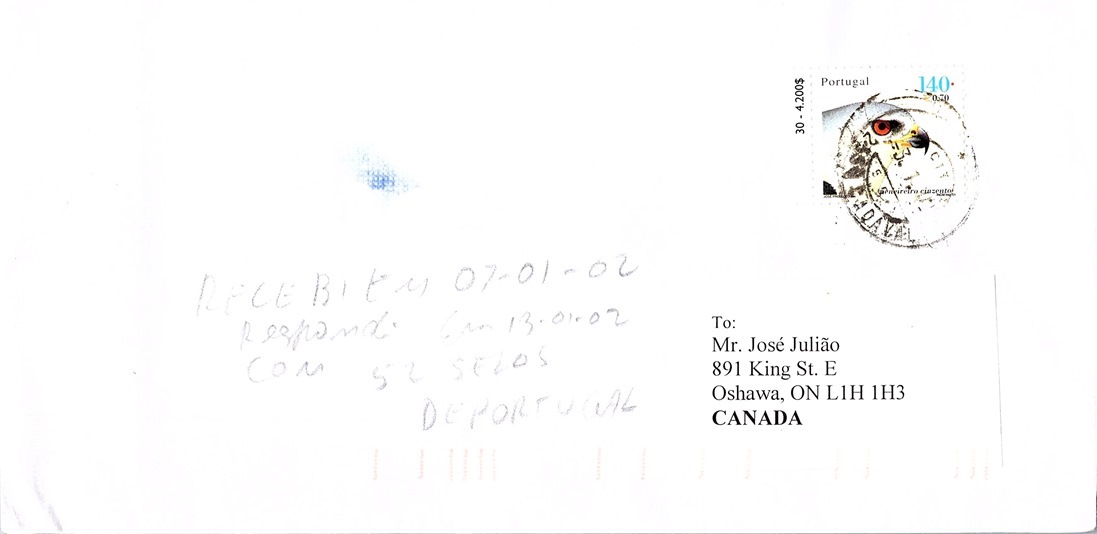 30 - 4.200$
Portugal
140.
0.70
Peneireiro cinzento
CTT
CADAVAL
RECEBI EM 07-01-02
Respondi Em 13-01-02
COM 52 SELOS
DE PORTUGAL
To:
Mr. José Julião
891 King St. E
Oshawa, ON L1H 1H3
CANADA